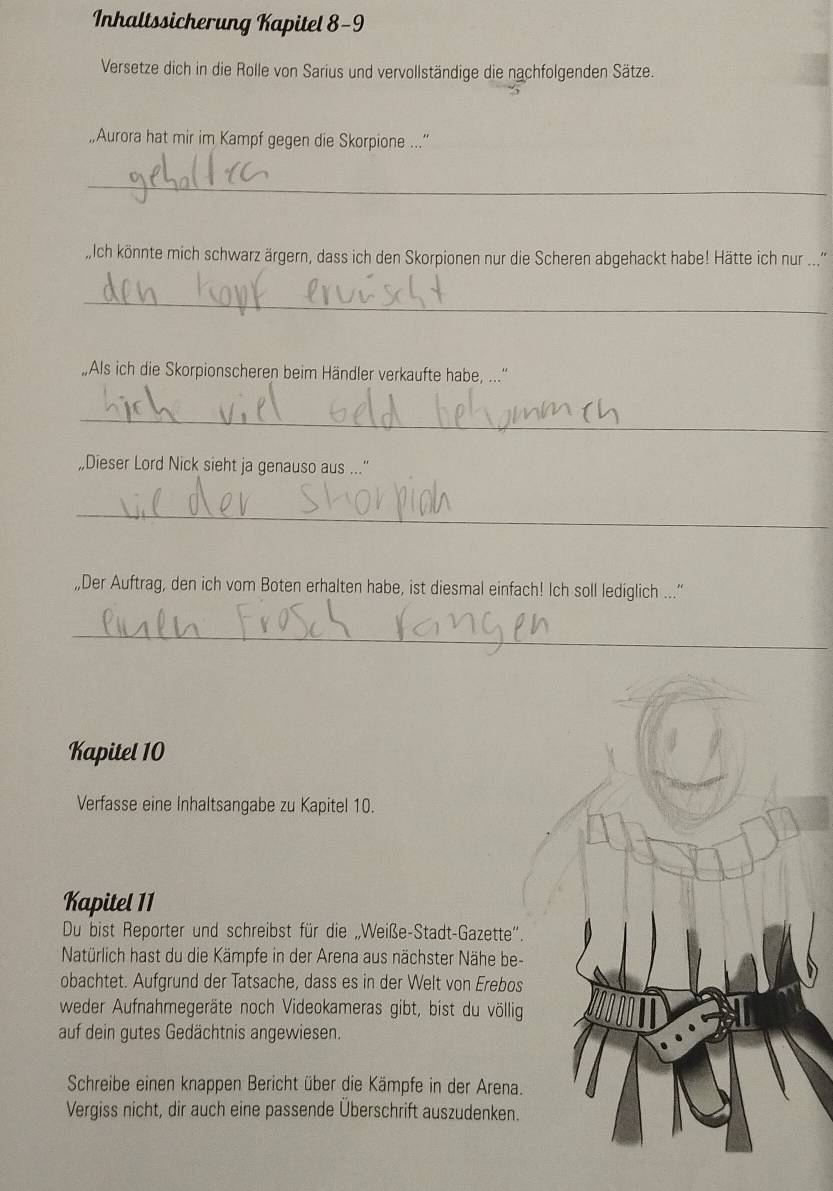 Inhaltssicherung Kapitel 8–9
Versetze dich in die Rolle von Sarius und vervollständige die nachfolgenden Sätze.
„Aurora hat mir im Kampf gegen die Skorpione ...“
geholfen
„Ich könnte mich schwarz ärgern, dass ich den Skorpionen nur die Scheren abgehackt habe! Hätte ich nur ...“
den kopf erwischt
„Als ich die Skorpionscheren beim Händler verkaufte habe, ...“
viel Geld bekommen
„Dieser Lord Nick sieht ja genauso aus ...“
wie der Skorpion
„Der Auftrag, den ich vom Boten erhalten habe, ist diesmal einfach! Ich soll lediglich ...“
einen Frosch fangen
Kapitel 10
Verfasse eine Inhaltsangabe zu Kapitel 10.
Kapitel 11
Du bist Reporter und schreibst für die „Weiße-Stadt-Gazette“.
Natürlich hast du die Kämpfe in der Arena aus nächster Nähe be-
obachtet. Aufgrund der Tatsache, dass es in der Welt von Erebos
weder Aufnahmegeräte noch Videokameras gibt, bist du völlig
auf dein gutes Gedächtnis angewiesen.
Schreibe einen knappen Bericht über die Kämpfe in der Arena.
Vergiss nicht, dir auch eine passende Überschrift auszudenken.